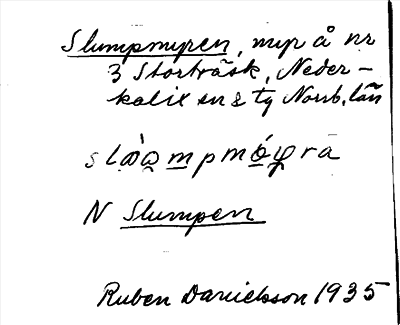 Slumpmyren, myr å nr
3 Storträsk, Neder-
kalix sn & tg Norrb. län
N Slumpen
Ruben Danielsson 1935